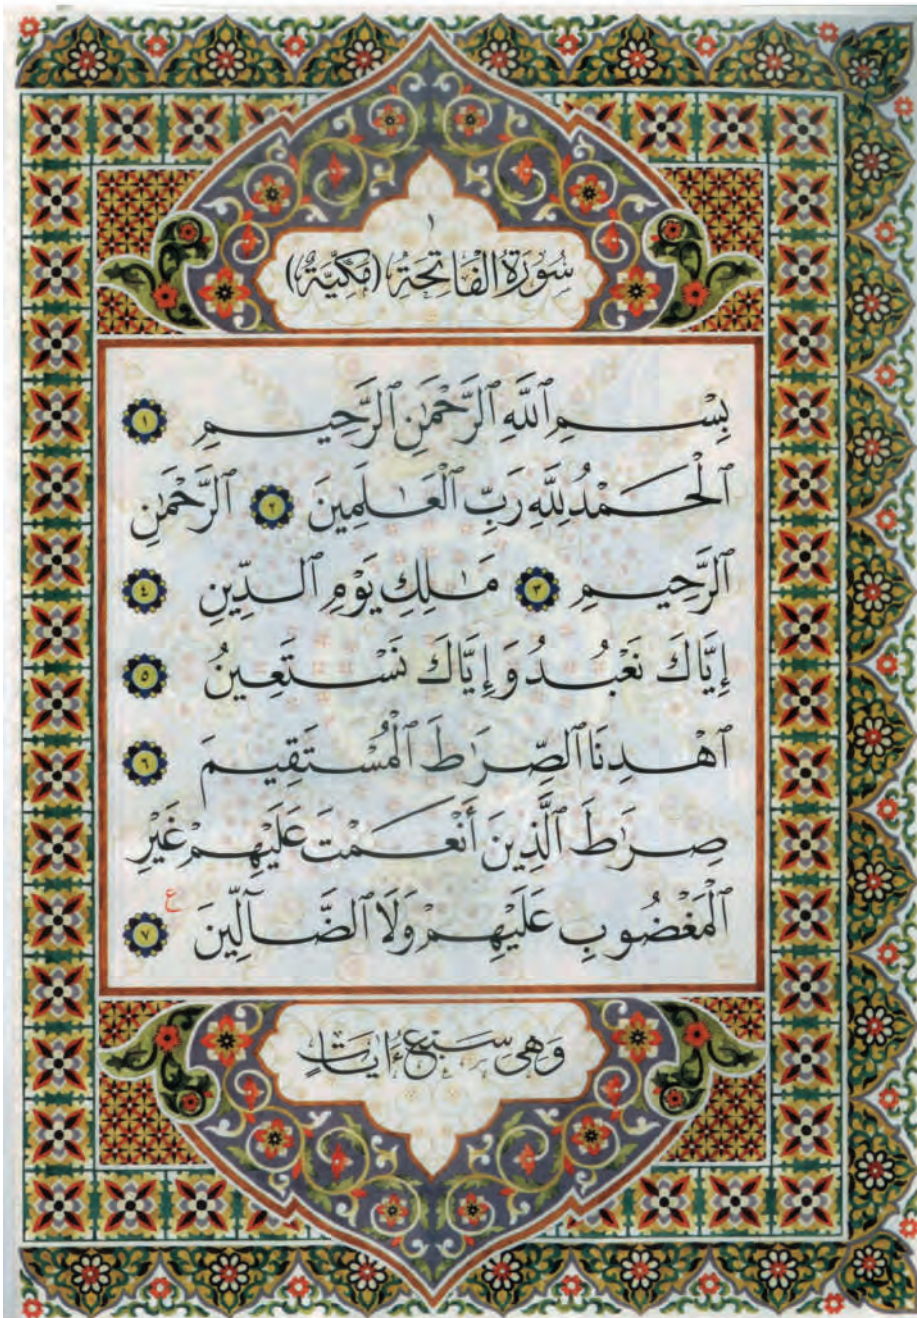 ١
سُورَةُ الْفَاتِحَةِ (مَكِّيَّةٌ)
بِسْمِ ٱللَّهِ ٱلرَّحْمَٰنِ ٱلرَّحِيمِ ١
ٱلْحَمْدُ لِلَّهِ رَبِّ ٱلْعَٰلَمِينَ ٢ ٱلرَّحْمَٰنِ
ٱلرَّحِيمِ ٣ مَٰلِكِ يَوْمِ ٱلدِّينِ ٤
إِيَّاكَ نَعْبُدُ وَإِيَّاكَ نَسْتَعِينُ ٥
ٱهْدِنَا ٱلصِّرَٰطَ ٱلْمُسْتَقِيمَ ٦
صِرَٰطَ ٱلَّذِينَ أَنْعَمْتَ عَلَيْهِمْ غَيْرِ
ٱلْمَغْضُوبِ عَلَيْهِمْ وَلَا ٱلضَّآلِّينَ ع ٧
وَهِىَ سَبْعُ ءَايَاتٍ